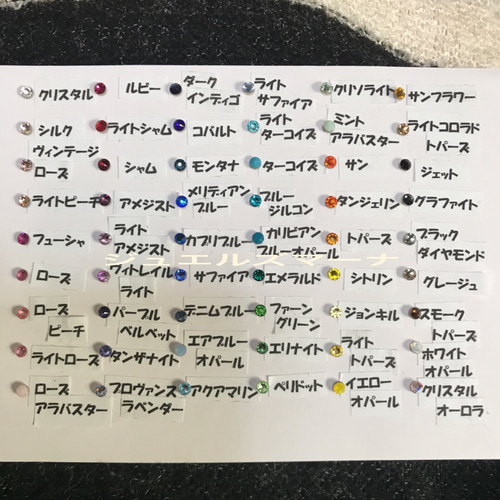 クリスタル
ルビー
ダーク
インディゴ
ライト
サファイア
クリソライト
サンフラワー
シルク
ライトシャム
コバルト
ライト
ターコイズ
ミント
アラバスター
ライトコロラド
トパーズ
ヴィンテージ
ローズ
シャム
モンタナ
ターコイズ
サン
ジェット
ライトピーチ
アメジスト
メリディアン
ブルー
ブルー
ジルコン
タンジェリン
グラファイト
フューシャ
ライト
アメジスト
カプリブルー
カリビアン
ブルーオパール
トパーズ
ブラック
ダイヤモンド
ジュエルスマーナ
ローズ
ヴィトレイル
ライト
サファイア
エメラルド
シトリン
グレージュ
ローズ
ピーチ
パープル
ベルベット
デニムブルー
ファーン
グリーン
ジョンキル
スモーク
トパーズ
ライトローズ
タンザナイト
エアブルー
オパール
エリナイト
ライト
トパーズ
ホワイト
オパール
ローズ
アラバスター
プロヴァンス
ラベンダー
アクアマリン
ペリドット
イエロー
オパール
クリスタル
オーロラ